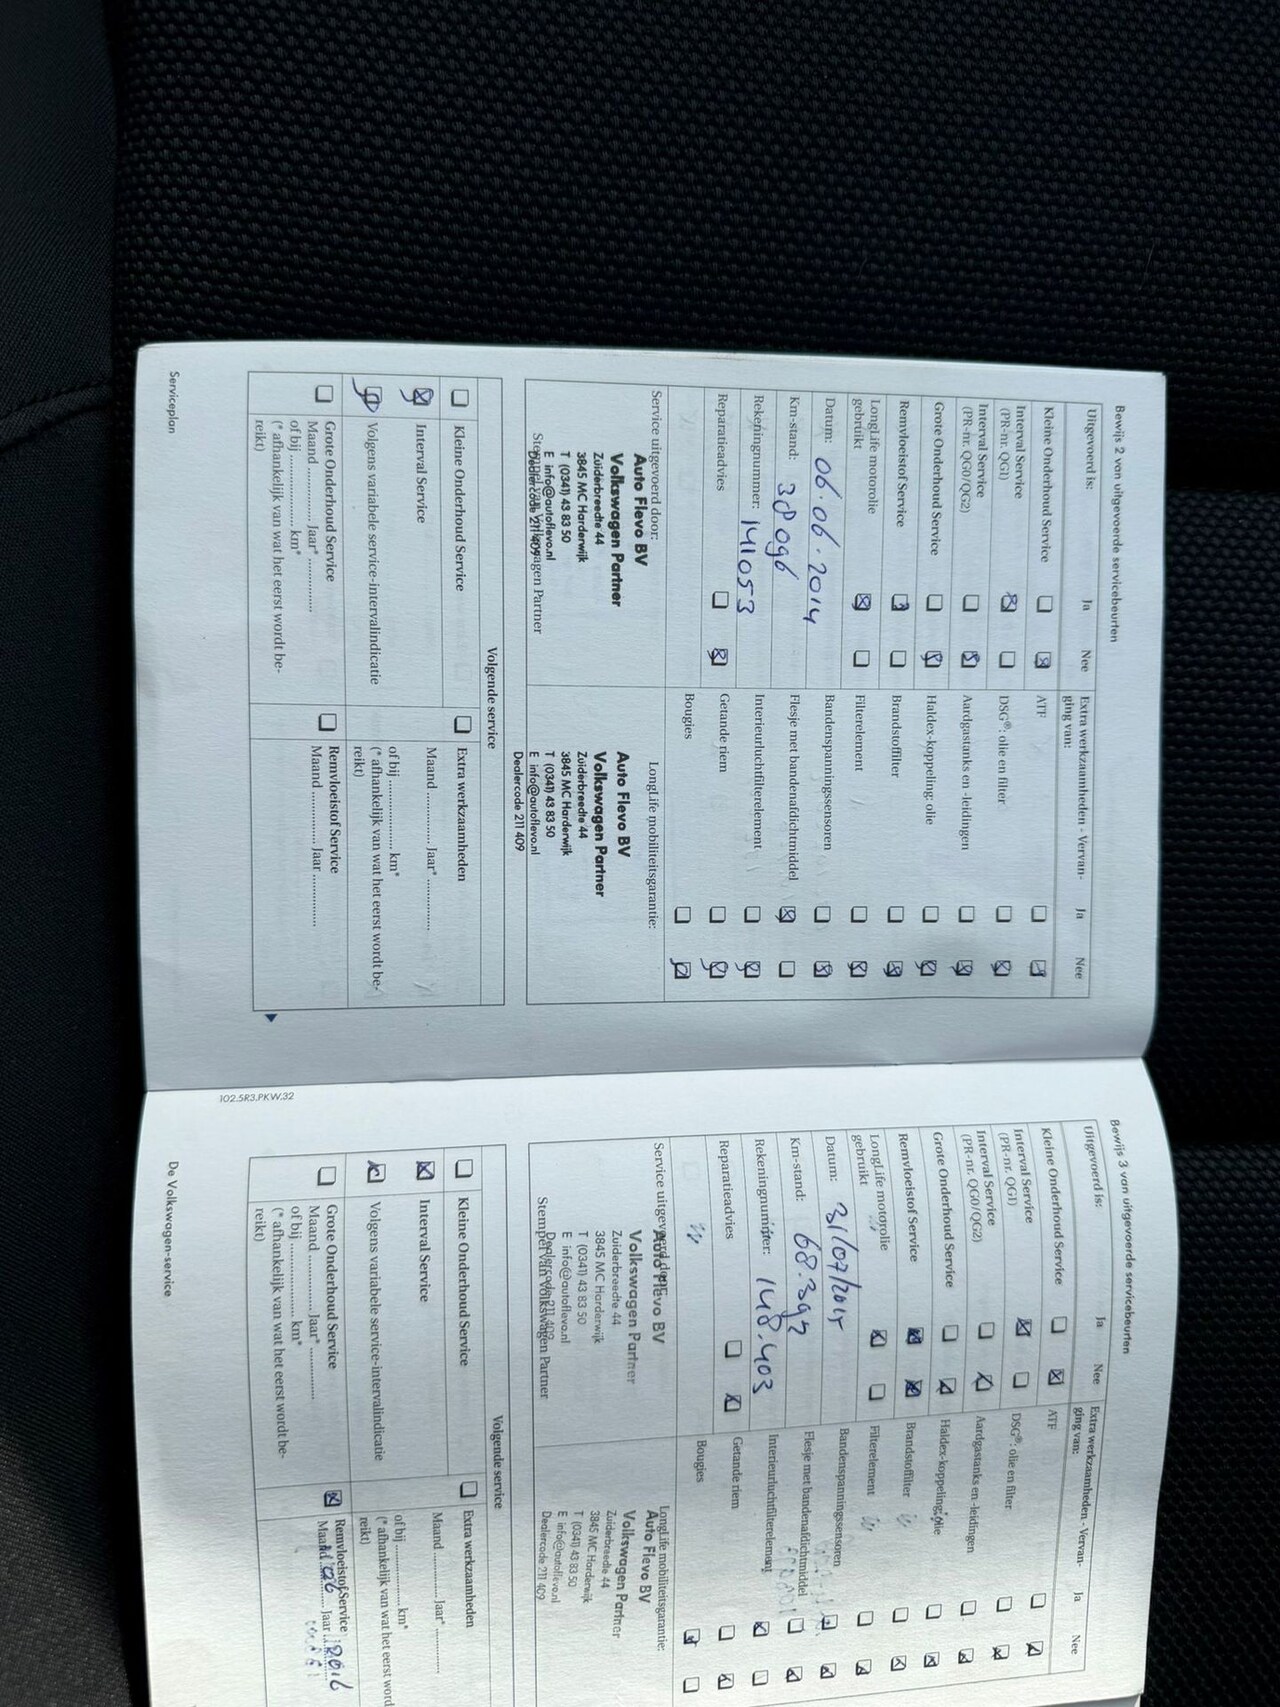 Bewijs 2 van uitgevoerde servicebeurten
Uitgevoerd is:
Ja
Nee
Extra werkzaamheden - Vervan-
ging van:
Ja
Nee
Kleine Onderhoud Service
ATF
Interval Service
(PR-nr. QG1)
DSG®: olie en filter
Interval Service
(PR-nr. QG0/QG2)
Aardgastanks en -leidingen
Grote Onderhoud Service
Haldex-koppeling: olie
Remvloeistof Service
Brandstoffilter
LongLife motorolie
gebruikt
Filterelement
Datum: 06.06.2014
Bandenspanningssensoren
Km-stand: 38096
Flesje met bandenafdichtmiddel
Rekeningnummer: 141053
Interieurluchtfilterelement
Reparatieadvies
Getande riem
Bougies
Service uitgevoerd door:
Auto Flevo BV
Volkswagen Partner
Zuiderbreedte 44
3845 MC Harderwijk
T (0341) 43 83 50
E info@autoflevo.nl
Dealercode 211 409
Stempel van Volkswagen Partner
LongLife mobiliteitsgarantie:
Auto Flevo BV
Volkswagen Partner
Zuiderbreedte 44
3845 MC Harderwijk
T (0341) 43 83 50
E info@autoflevo.nl
Dealercode 211 409
Volgende service
Kleine Onderhoud Service
Interval Service
Volgens variabele service-intervalindicatie
Grote Onderhoud Service
Maand .......... Jaar* ..............
of bij .................. km*
(* afhankelijk van wat het eerst wordt be-
reikt)
Extra werkzaamheden
Maand .......... Jaar* ..............
of bij .................. km*
(* afhankelijk van wat het eerst wordt be-
reikt)
Remvloeistof Service
Maand .......... Jaar ..............
Serviceplan
102.5R3.PKW.32
Bewijs 3 van uitgevoerde servicebeurten
Uitgevoerd is:
Ja
Nee
Extra werkzaamheden - Vervan-
ging van:
Ja
Nee
Kleine Onderhoud Service
ATF
Interval Service
(PR-nr. QG1)
DSG®: olie en filter
Interval Service
(PR-nr. QG0/QG2)
Aardgastanks en -leidingen
Grote Onderhoud Service
Haldex-koppeling: olie
Remvloeistof Service
Brandstoffilter
LongLife motorolie
gebruikt
Filterelement
Datum: 31/07/2015
Bandenspanningssensoren
Km-stand: 68.392
Flesje met bandenafdichtmiddel
Rekeningnummer: 148.403
Interieurluchtfilterelement
Reparatieadvies
Getande riem
Bougies
Service uitgevoerd door:
Auto Flevo BV
Volkswagen Partner
Zuiderbreedte 44
3845 MC Harderwijk
T (0341) 43 83 50
E info@autoflevo.nl
Dealercode 211 409
Stempel van Volkswagen Partner
LongLife mobiliteitsgarantie:
Auto Flevo BV
Volkswagen Partner
Zuiderbreedte 44
3845 MC Harderwijk
T (0341) 43 83 50
E info@autoflevo.nl
Dealercode 211 409
Volgende service
Kleine Onderhoud Service
Interval Service
Volgens variabele service-intervalindicatie
Grote Onderhoud Service
Maand .......... Jaar* ..............
of bij .................. km*
(* afhankelijk van wat het eerst wordt be-
reikt)
Extra werkzaamheden
Maand .......... Jaar* ..............
of bij .................. km*
(* afhankelijk van wat het eerst word
reikt)
Remvloeistof Service
Maand 06 Jaar 2016
De Volkswagen-service